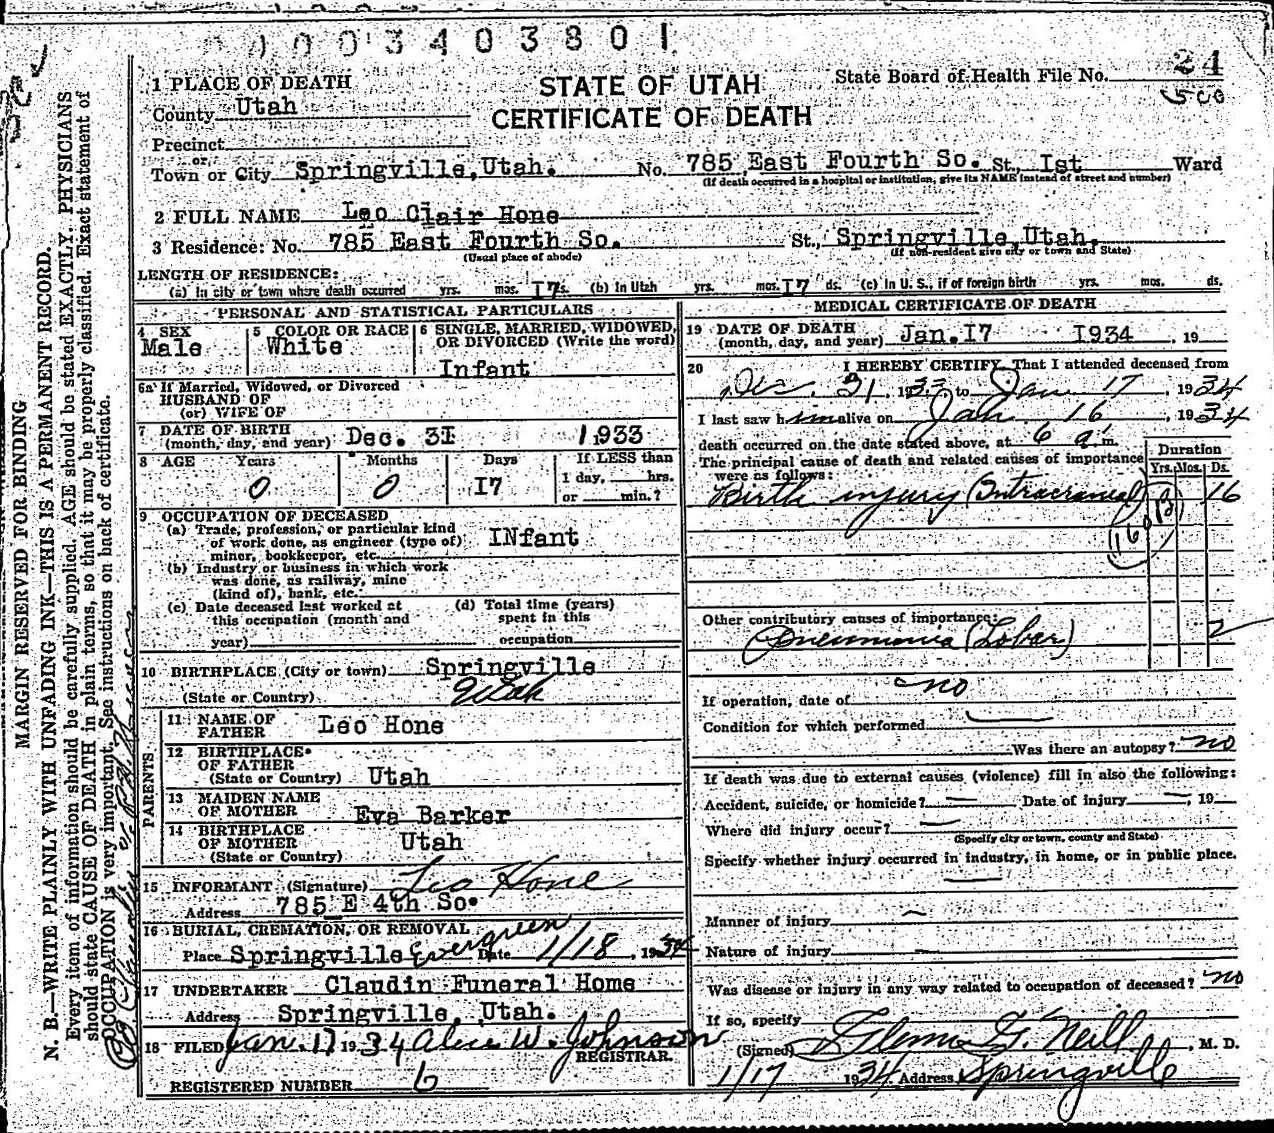 0003403801
STATE OF UTAH
CERTIFICATE OF DEATH
State Board of Health File No. 24
500
1 PLACE OF DEATH
County Utah
Precinct
or
Town or City Springville, Utah. No. 785 East Fourth So. St., Ist Ward
(If death occurred in a hospital or institution, give its NAME instead of street and number)
2 FULL NAME Leo Clair Hone
3 Residence: No. 785 East Fourth So. St., Springville, Utah.
(Usual place of abode) (If non-resident give city or town and State)
LENGTH OF RESIDENCE:
(a) In city or town where death occurred yrs. mos. I7 s. (b) In Utah yrs. mos. I7 ds. (c) In U. S., if of foreign birth yrs. mos. ds.
PERSONAL AND STATISTICAL PARTICULARS
4 SEX
Male
5 COLOR OR RACE
White
6 SINGLE, MARRIED, WIDOWED,
OR DIVORCED (Write the word)
Infant
6a If Married, Widowed, or Divorced
HUSBAND OF
(or) WIFE OF
7 DATE OF BIRTH
(month, day, and year) Dec. 3I 1933
8 AGE Years Months Days If LESS than
0 0 I7 1 day, hrs.
or min.?
9 OCCUPATION OF DECEASED
(a) Trade, profession, or particular kind
of work done, as engineer (type of) INfant
miner, bookkeeper, etc.
(b) Industry or business in which work
was done, as railway, mine
(kind of), bank, etc.
(c) Date deceased last worked at
this occupation (month and
year)
(d) Total time (years)
spent in this
occupation
10 BIRTHPLACE (City or town) Springville
(State or Country) Utah
PARENTS
11 NAME OF
FATHER Leo Hone
12 BIRTHPLACE
OF FATHER
(State or Country) Utah
13 MAIDEN NAME
OF MOTHER Eva Barker
14 BIRTHPLACE
OF MOTHER Utah
(State or Country)
15 INFORMANT (Signature) Leo Hone
Address 785 E 4th So.
16 BURIAL, CREMATION, OR REMOVAL
Place Springville Evergreen Date 1/18, 1934
17 UNDERTAKER Claudin Funeral Home
Address Springville, Utah.
18 FILED Jan. 17 1934 Alice W. Johnson
REGISTRAR.
REGISTERED NUMBER 6
MEDICAL CERTIFICATE OF DEATH
19 DATE OF DEATH
(month, day, and year) Jan. I7 I934, 19
20 I HEREBY CERTIFY, That I attended deceased from
Dec. 31, 1933 to Jan 17, 1934
I last saw him alive on Jan 16, 1934
death occurred on the date stated above, at 6 a. m.
The principal cause of death and related causes of importance
were as follows:
Duration
Yrs. Mos. Ds.
Birth injury (Intracranial) 16
160 B
Other contributory causes of importance:
Pneumonia (Lobar) 2
If operation, date of no
Condition for which performed
Was there an autopsy? no
If death was due to external causes (violence) fill in also the following:
Accident, suicide, or homicide? Date of injury, 19
Where did injury occur?
(Specify city or town, county and State)
Specify whether injury occurred in industry, in home, or in public place.
Manner of injury
Nature of injury
Was disease or injury in any way related to occupation of deceased? no
If so, specify
(Signed) Neill, M. D.
1/17 1934. Address Springville
MARGIN RESERVED FOR BINDING
N. B.—WRITE PLAINLY WITH UNFADING INK—THIS IS A PERMANENT RECORD.
Every item of information should be carefully supplied. AGE should be stated EXACTLY. PHYSICIANS
should state CAUSE OF DEATH in plain terms, so that it may be properly classified. Exact statement of
OCCUPATION is very important. See instructions on back of certificate.